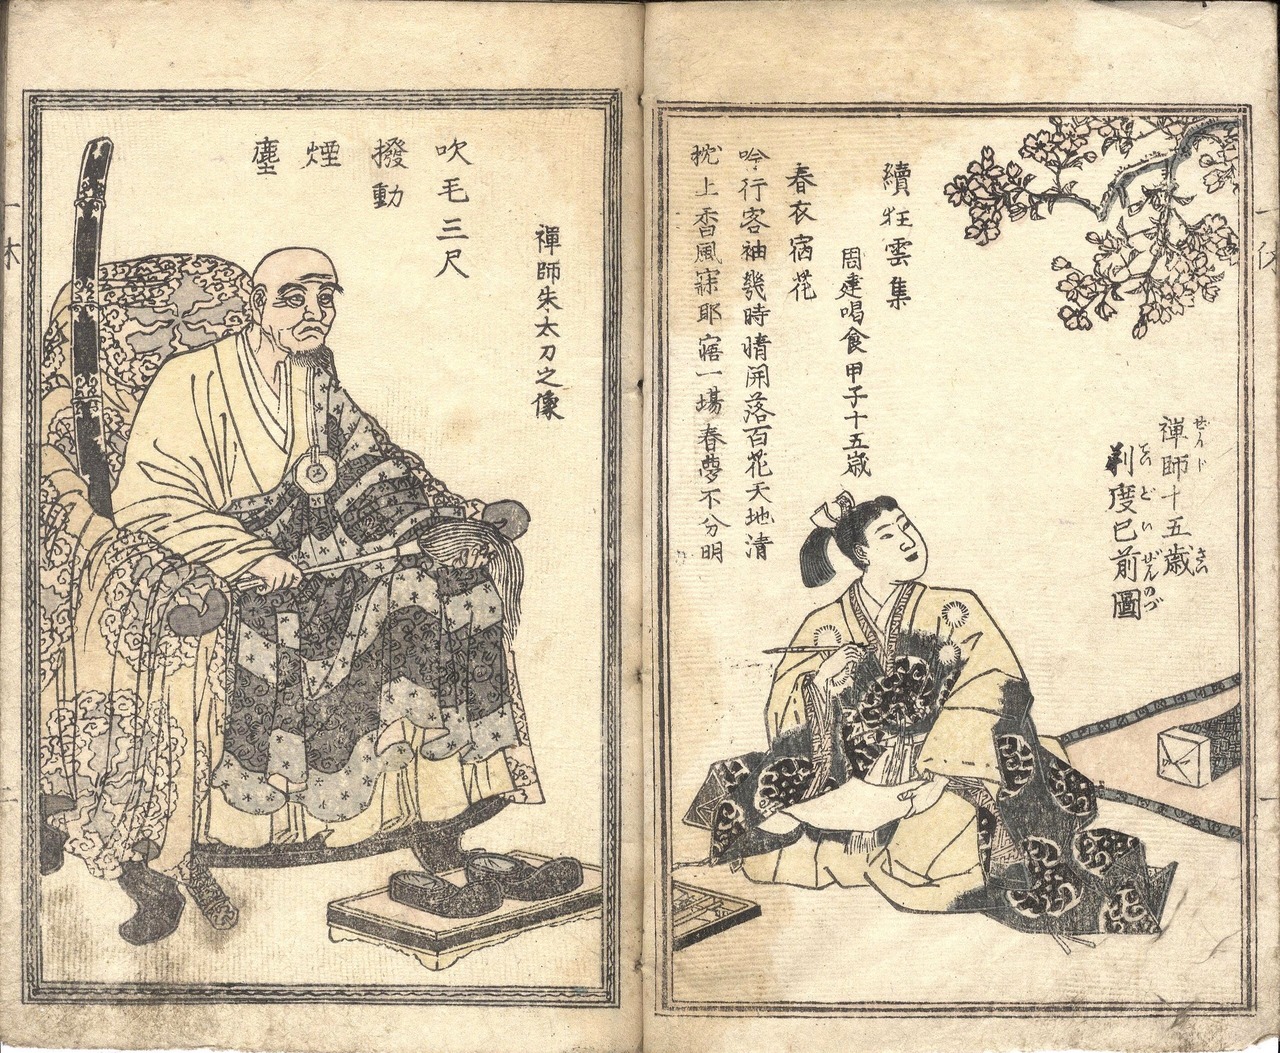 禪師十五歳
ぜんじ
さい
剃度已前圖
ていどいぜんのづ
續狂雲集
周建喝食甲子十五歳
春衣宿花
吟行客袖幾時情開落百花天地清
枕上香風寐耶寤一場春夢不分明
禪師朱太刀之像
吹毛三尺
撥動
煙
塵
一休